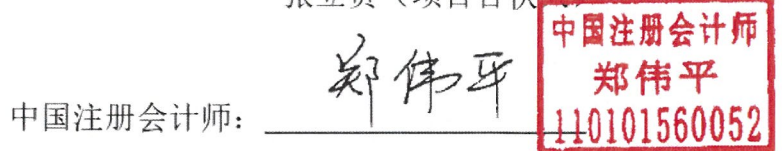 中国注册会计师
郑伟平
110101560052
中国注册会计师：郑伟平